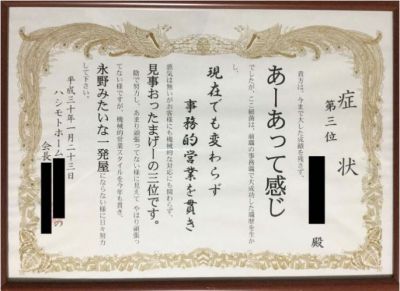 症状
第三位
殿
貴方は、今まで大した成績を残さず、
あーあって感じ
でしたが、ここ最近は、前職の事務職で大成功した経歴を生か
し、
現在でも変わらず
事務的営業を貫き
悪気は無いがお客様にも機械的な対応にも関わらず、
見事おったまげーの三位です。
陰で努力し、あまり頑張ってない様に見えて やはり頑張っ
てない様ですが、機械的営業スタイルを今年も貫き、
永野みたいな一発屋にならない様に日々努力
して下さい。
平成三十年一月二十三日
ハシモトホーム
会長
の